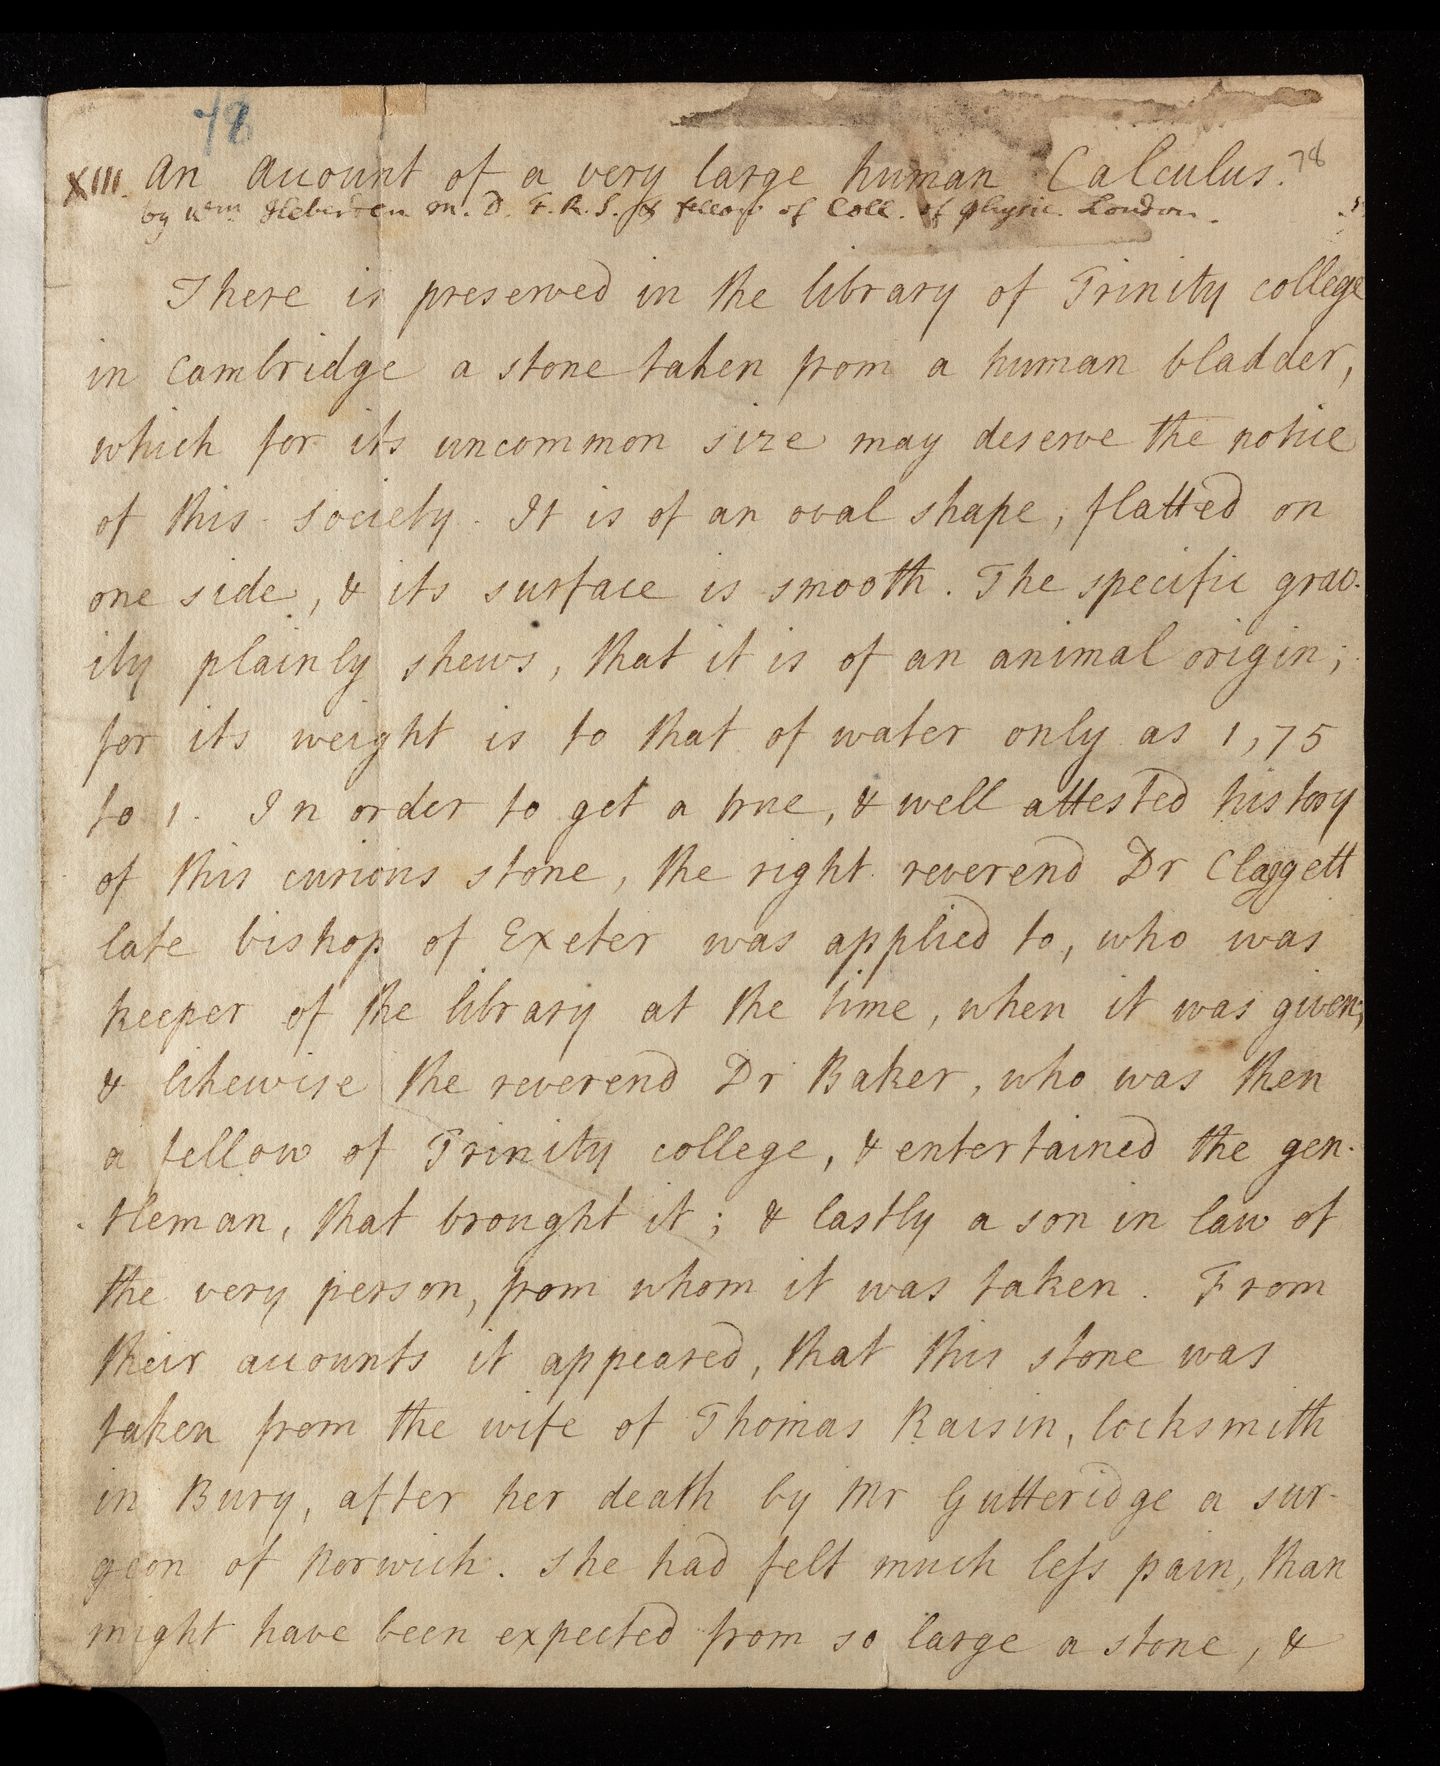 78
XIII. An account of a very large human Calculus. 78
by Wm. Heberden M. D. F. R. S. & fellow of Coll. of Physic. London.
There is preserved in the library of Trinity college
in Cambridge a stone taken from a human bladder,
which for its uncommon size may deserve the notice
of this society. It is of an oval shape, flatted on
one side, & its surface is smooth. The specific grav-
ity plainly shews, that it is of an animal origin;
for its weight is to that of water only as 1,75
to 1. In order to get a true, & well attested history
of this curious stone, the right reverend Dr Claggett
late bishop of Exeter was applied to, who was
keeper of the library at the time, when it was given;
& likewise the reverend Dr Baker, who was then
a fellow of Trinity college, & entertained the gen-
tleman, that brought it; & lastly a son in law of
the very person, from whom it was taken. From
their accounts it appeared, that this stone was
taken from the wife of Thomas Raisin, locksmith
in Bury, after her death by Mr Gutteridge a sur-
geon of Norwich. She had felt much less pain, than
might have been expected from so large a stone, &